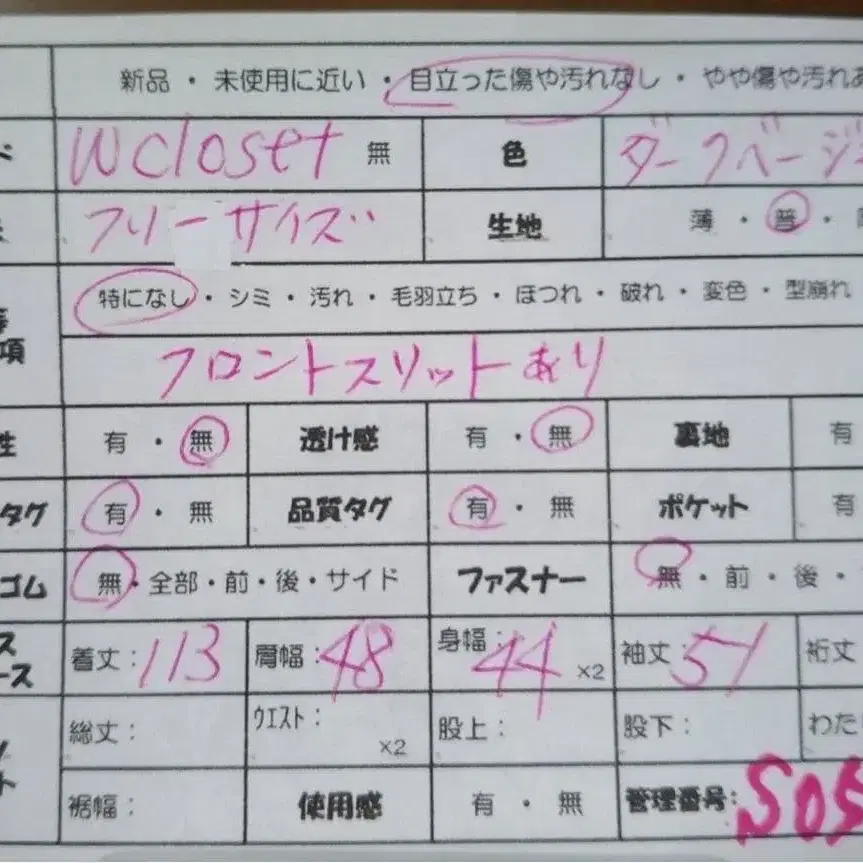 新品 ・ 未使用に近い ・ 目立った傷や汚れなし ・ やや傷や汚れあ
ド W closet 無 色 ダークベージ
フリーサイズ 生地 薄 ・ 普 ・
特になし ・ シミ ・ 汚れ ・ 毛羽立ち ・ ほつれ ・ 破れ ・ 変色 ・ 型崩れ
等
項 フロントスリットあり
性 有 ・ 無 透け感 有 ・ 無 裏地 有
タグ 有 ・ 無 品質タグ 有 ・ 無 ポケット 有
ゴム 無 ・ 全部 ・ 前 ・ 後 ・ サイド ファスナー 無 ・ 前 ・ 後 ・
ス
ース 着丈: 113 肩幅: 48 身幅: 44 ×2 袖丈: 51 裄丈
総丈: ウエスト: ×2 股上: 股下: わた
ト 裾幅: 使用感 有 ・ 無 管理番号: S05